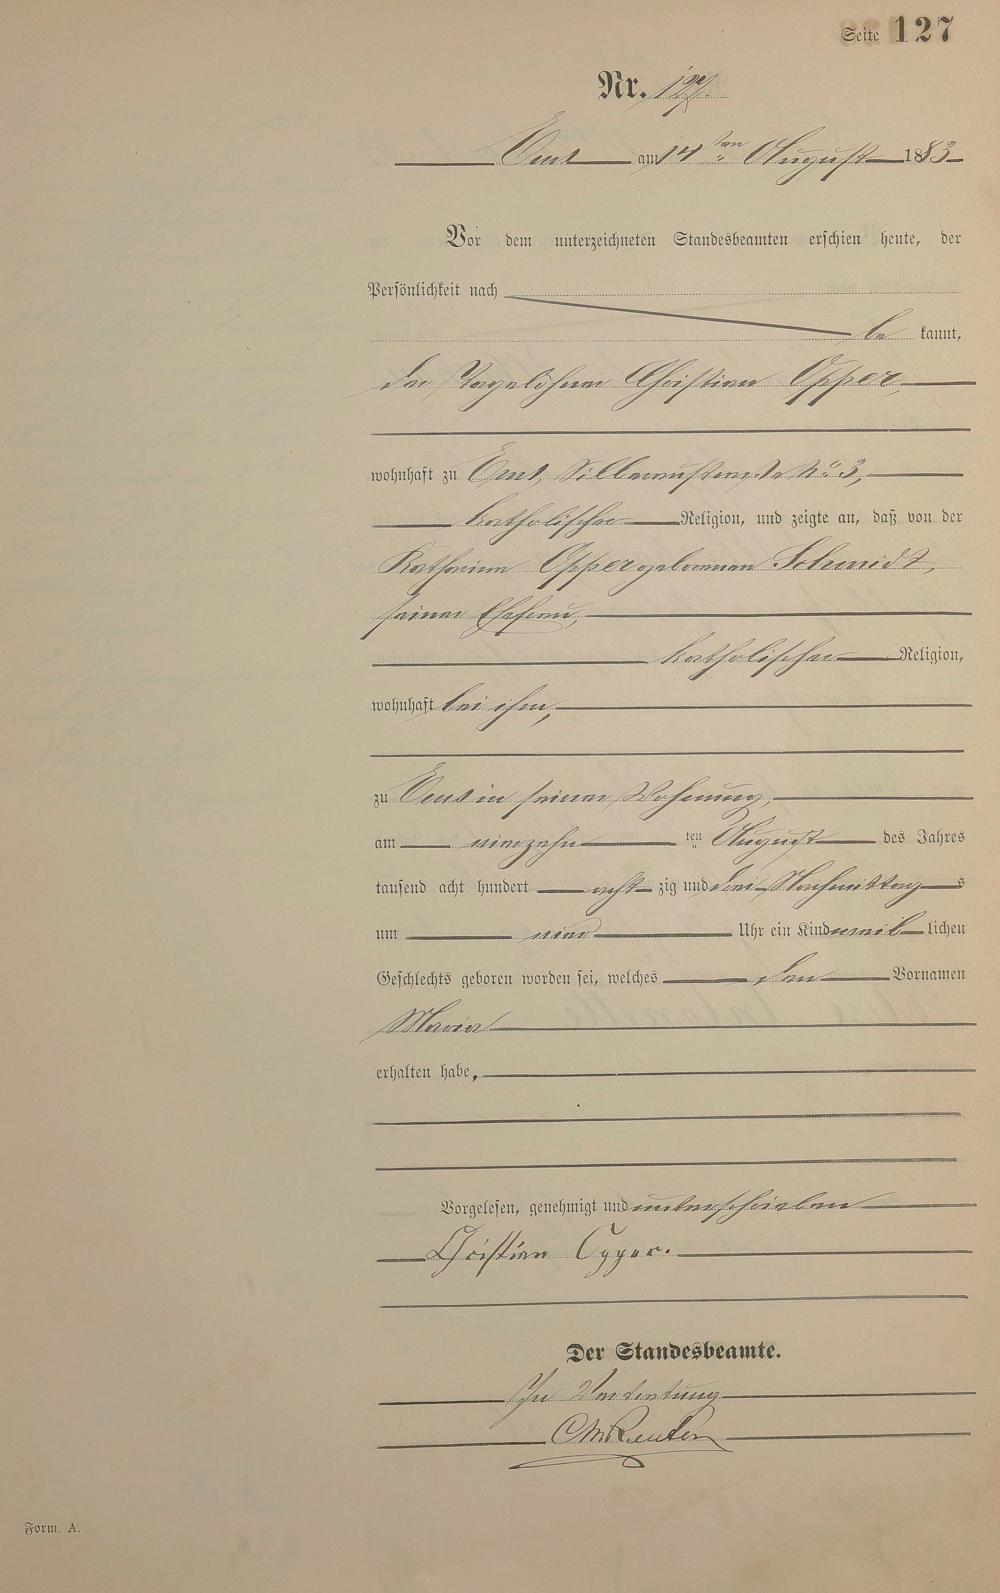 Seite 127
Nr. 127.
Ems am 14ten August 1883
Vor dem unterzeichneten Standesbeamten erschien heute, der
Persönlichkeit nach
be kannt,
der Tagelöhner Christian Opper,
wohnhaft zu Ems, Silberaustraße No 3,
katholischer Religion, und zeigte an, daß von der
Katharina Opper geborenen Schmidt,
seiner Ehefrau,
katholischer Religion,
wohnhaft bei ihm,
zu Ems in seiner Wohnung,
am vierzehn ten August des Jahres
tausend acht hundert acht zig und drei Nachmittag s
um vier Uhr ein Kind weib lichen
Geschlechts geboren worden sei, welches den Vornamen
Maria
erhalten habe,
Vorgelesen, genehmigt und unterschrieben
Christian Opper.
Der Standesbeamte.
In Vertretung
Reuter
Form. A.